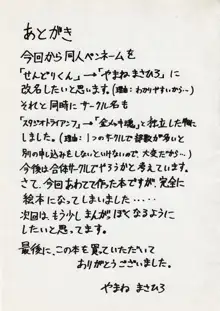 あとがき
今回から同人ペンネームを
「せんどりくん」→「やまねまさひろ」に
改名したいと思います。(理由:わかりやすいから…)
それと同時にサークル名も
「スタジオトライアングフ」→「全人牛魂」と独立した物に
しました。(理由:1つのサークルで種数が多いと
別の申し込みをしないといけないので、大変だから…)
今後は合体サークルでやろうかと考えています。
さて、今回あわてて作った本ですが、完全に
絵本になってしまいました‥‥‥
次回は、もう少しまんがぽくなるように
したいと思ってます。
最後に、この本を買っていただいて
ありがとうございました。
やまね まさひろ